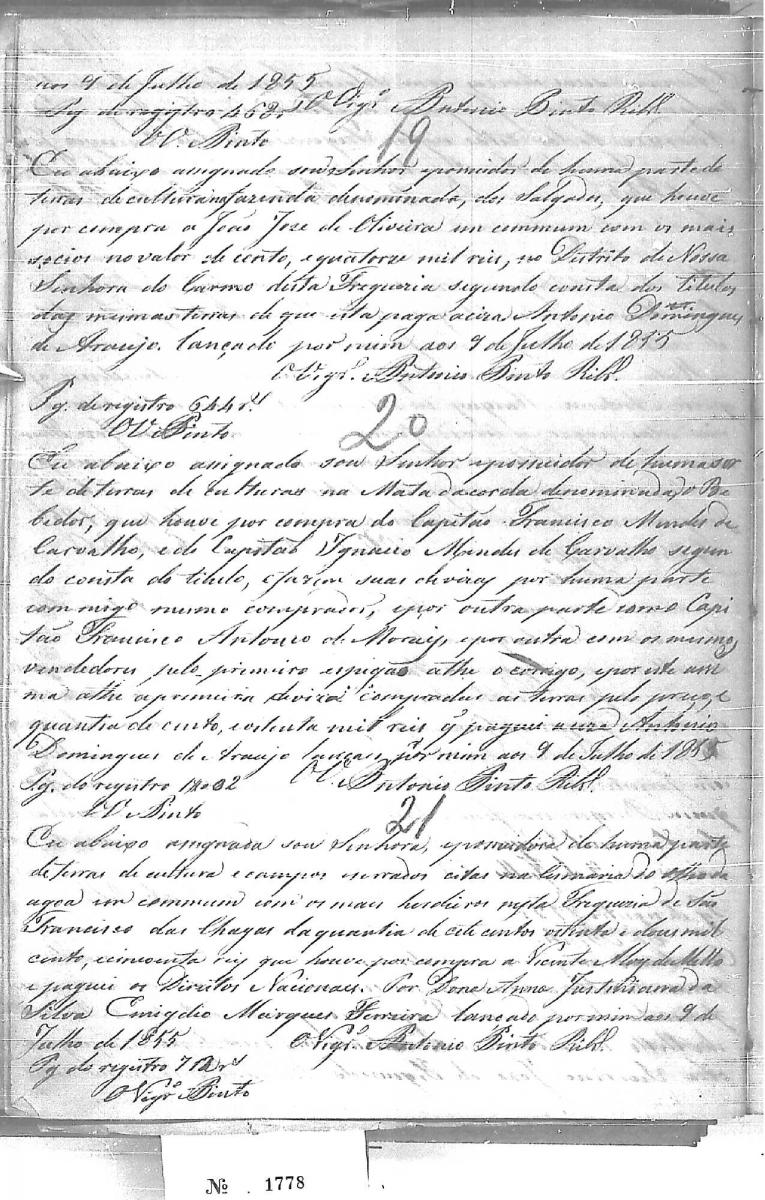 aos 9 de Julho de 1855
Pg. de registro 458 rs O Vigr.º Antonio Pinto Rib.
O V. Pinto
19
Eu abaixo assignado sou Senhor epossuidor de huma parte de
terras de culturanafazenda denominada, dos Salgados, que houve
por compra a João Jose de Oliveira em commum com os mais
socios novalor de cento, equatorze mil reis, no Distrito de Nossa
Senhora do Carmo desta Freguezia segundo consta dos titulos
das mesmas terras de que esta paga aciza Antonio Domingues
de Araujo. lançado por mim aos 9 de Julho de 1855
O Vigr.º Antonio Pinto Rib.
Pg. de registro 644 rs
O V. Pinto
20
Eu abaixo assignado sou Senhor epossuidor de humasor
te deterras de culturas na Mata dacorda denominada, o Be
bedor, que houve por compra do Capitão Francisco Mendes de
Carvalho, edo Capitão Ygnacio Mendes de Carvalho segun
do consta do titulo, efazem suas devizas por huma parte
com migo mesmo comprador, epor outra parte como Capi
tão Francisco Antonio de Moraes, epor outra com os mesmos
vendedores pelo primeiro espigão athe o corrigo, epor este assi
ma athe aprimeira deviza compradas as terras pelo preço, e
quantia de cento, eoitenta mil reis q paguei a ciza Antonio
Domingues de Araujo lançado por mim aos 9 de Julho de 1855
Pg. do registro O V. Antonio Pinto Rib.
O V. Pinto
21
Eu abaixo assignada sou Senhora, epossuidora de huma parte
de terras de cultura e campos serrados citas na Cismaria do olho da
agoa em commum com os mais herdeiros nesta Freguezia de São
Francisco das Chagas daquantia de cete centos oitenta edous mil
cento, ecincoenta reis que houve por compra a Vicente Aloz de Mello
epaguei os Direitos Nacionaes. Por Dona Anna Justiniana da
Silva Emigdio Marques Ferreira lançado pormim aos 9 de
Julho de 1855 O Vigr.º Antonio Pinto Rib.
Pg. do registro 712 rs
O Vigr.º Pinto
Nº 1778